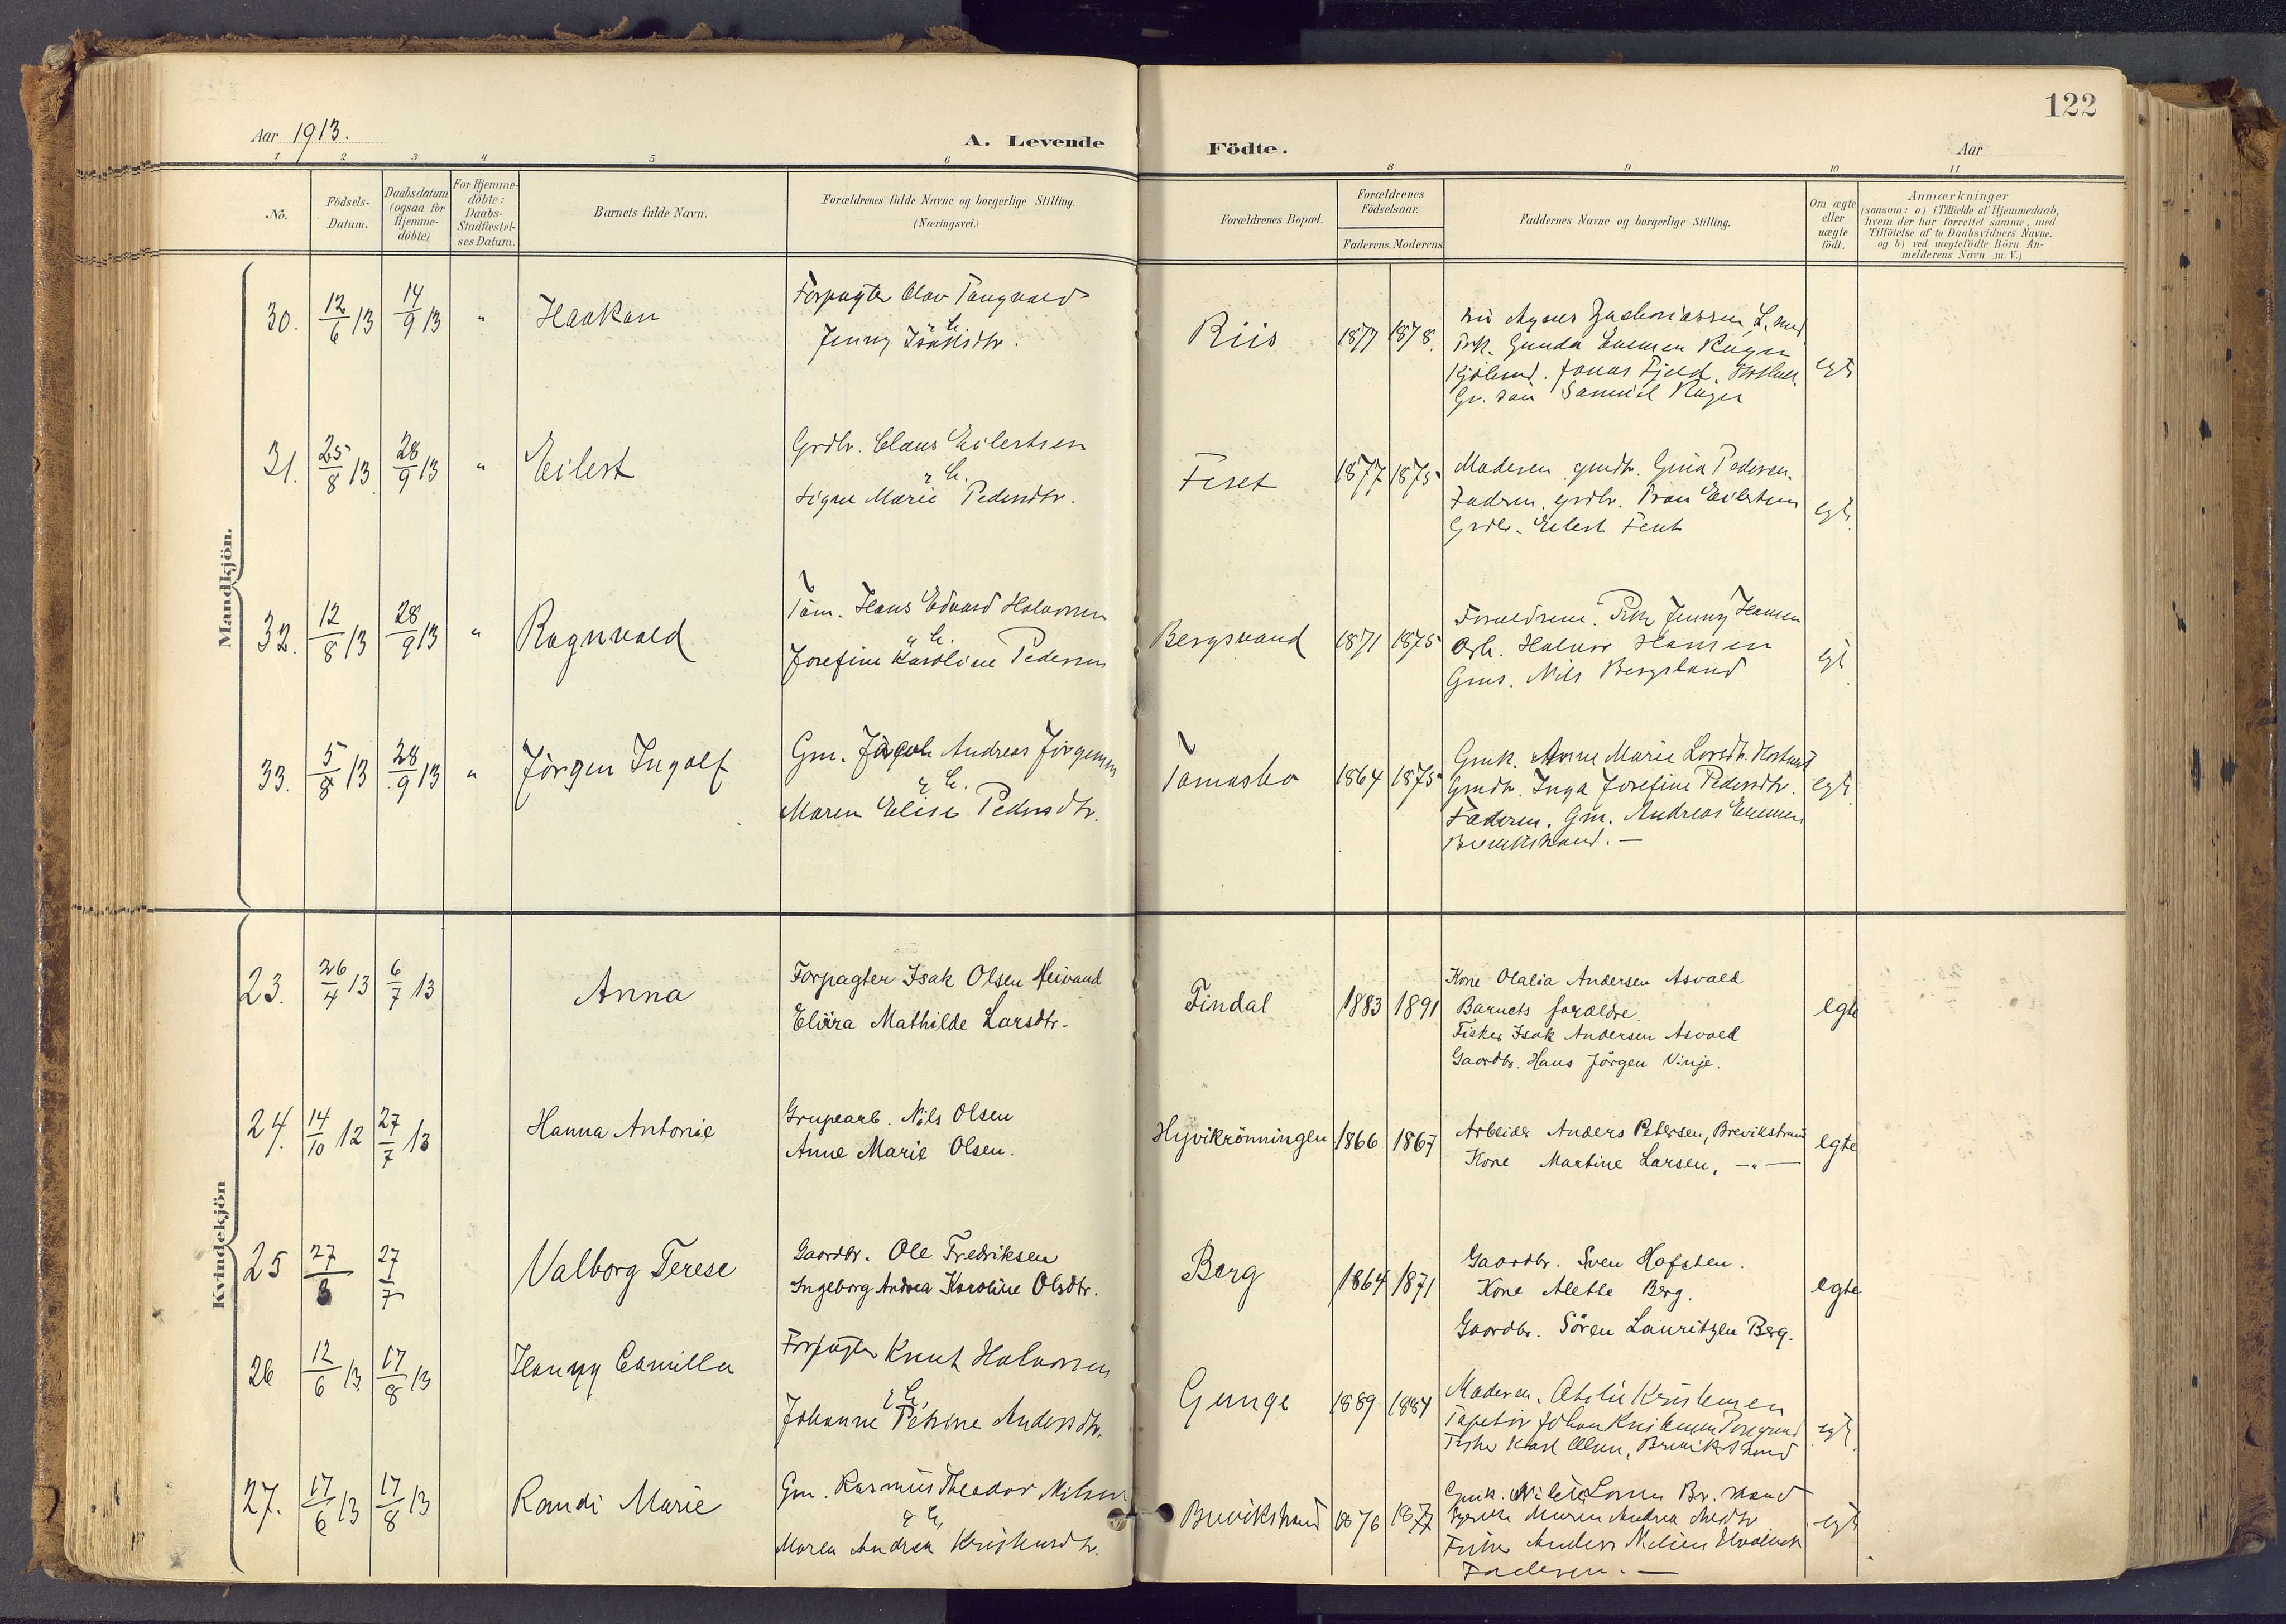 122
Aar 1913.
A. Levende Födte.
Aar
1 2 3 4 5 6 8 9 10 11
No.
Födsels-
Datum.
Daabsdatum
(ogsaa for
Hjemme-
döbte)
For Hjemme-
döbte:
Daabs-
Stadfæstel-
ses Datum.
Barnets fulde Navn.
Forældrenes fulde Navne og borgerlige Stilling.
(Næringsvei.)
Forældrenes Bopæl.
Forældrenes
Födselsaar.
Faderens. Moderens
Faddernes Navne og borgerlige Stilling.
Om ægte
eller
uægte
födt.
Anmærkninger
(saasom: a) i Tilfælde af Hjemmedaab,
hvem der har forrettet samme, med
Tilföielse af to Daabsvidners Navne.
og b) ved uægtefödte Börn An-
melderens Navn m.V.)
Mandkjön.
30. 12/6 13 14/9 13 " Haakon
Forpagter Olav Tangvald
Jenny Isaksdtr.
Riis 1877 1878.
Agnes Zachariassen
Gunda Evensen
Jonas Fjeld
Samuel
egte
31. 25/8 13 28/9 13 " Eilert
Grdbr. Claus Eilertsen
Signe Marie Pedersdtr.
Feset 1877 1875
Moderen gmdtr. Gina Pedersen.
Faderen. grdbr. Eilertsen
Grdbr. Eilert
egte
32. 12/8 13 28/9 13 " Ragnvald
Töm. Hans Edvard Halvorsen
Josefine Karoline Pedersen
Bergsvand 1871 1875
Forældrene. Pike Jenny Hansen
Arb. Halvor Hansen
Gms. Nils Bergsland
egt
33. 5/8 13 28/9 13 " Jörgen Ingolf
Gm. Jacob Andreas Jörgensen
Maren Elise Pedersdtr.
Tomasbo 1864 1875
Gmk. Anne Marie
Gmdtr. Inga Josefine Pedersdtr.
Faderen. Gm. Andreas Evensen
Brevikstrand. —
egte
Kvindekjön
23. 26/4 13 6/7 13 Anna
Forpagter Isak Olsen Heivand
Elvira Mathilde Larsdtr.
Findal 1883 1891
Kone Olalia Andersen Asvald
Barnets forældre.
Fisker Isak Andersen Asvald
Gaardbr. Hans Jörgen Vinje.
egte
24. 14/10 12 27/7 13 Hanna Antonie
Grupearb. Nils Olsen
Anne Marie Olsen.
Hyvikrönningen 1866 1867
Arbeider Anders Petersen, Brevikstrand
Kone Martine Larsen, —"—
egte
25 27/3 27/7 Valborg Terese
Gaardbr. Ole Fredriksen
Ingeborg Andrea Karoline Olsdtr.
Berg 1864 1871
Gaardbr. Sven Hafsten.
Kone Alette Berg.
Gaardbr. Sören Lauritzen Berg.
egte
26 12/6 13 17/8 13 Hanny Camilla
Forpagter Knut Halvorsen
Johanne Petrine Andersdtr.
Gunge 1889 1884
Moderen. Kristensen
Tapetser Johan Kristensen Porsgrund
Fisker Karl Olsen, Brevikstrand
egte
27. 17/6 13 17/8 13 Randi Marie
Gm. Rasmus Theodor Nilsen
Maren Andrea Kristensdtr.
Brevikstrand 1876 1877
Gmk.
Maren Andrea
Fisker Anders Nilsen
Faderen. —
egte